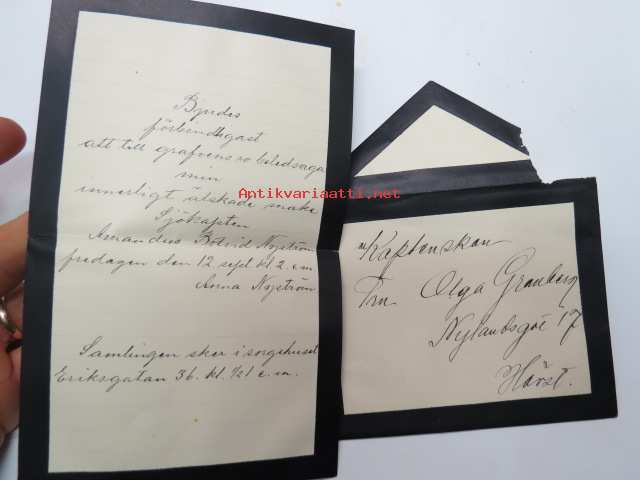 Bjudes
förbindligast
att till grafvens ro beledsaga
min
innerligt älskade make
Sjökapten
Amandus Botvid Nyström
fredagen den 12 sept. kl 2 e.m
Anna Nyström
Samlingen sker i sorgehuset
Eriksgatan 36. kl. 1/21 e.m.
Antikvariaatti.net
Kaptenskan
Fru Olga Granberg
Nylandsgat 17
Härst.